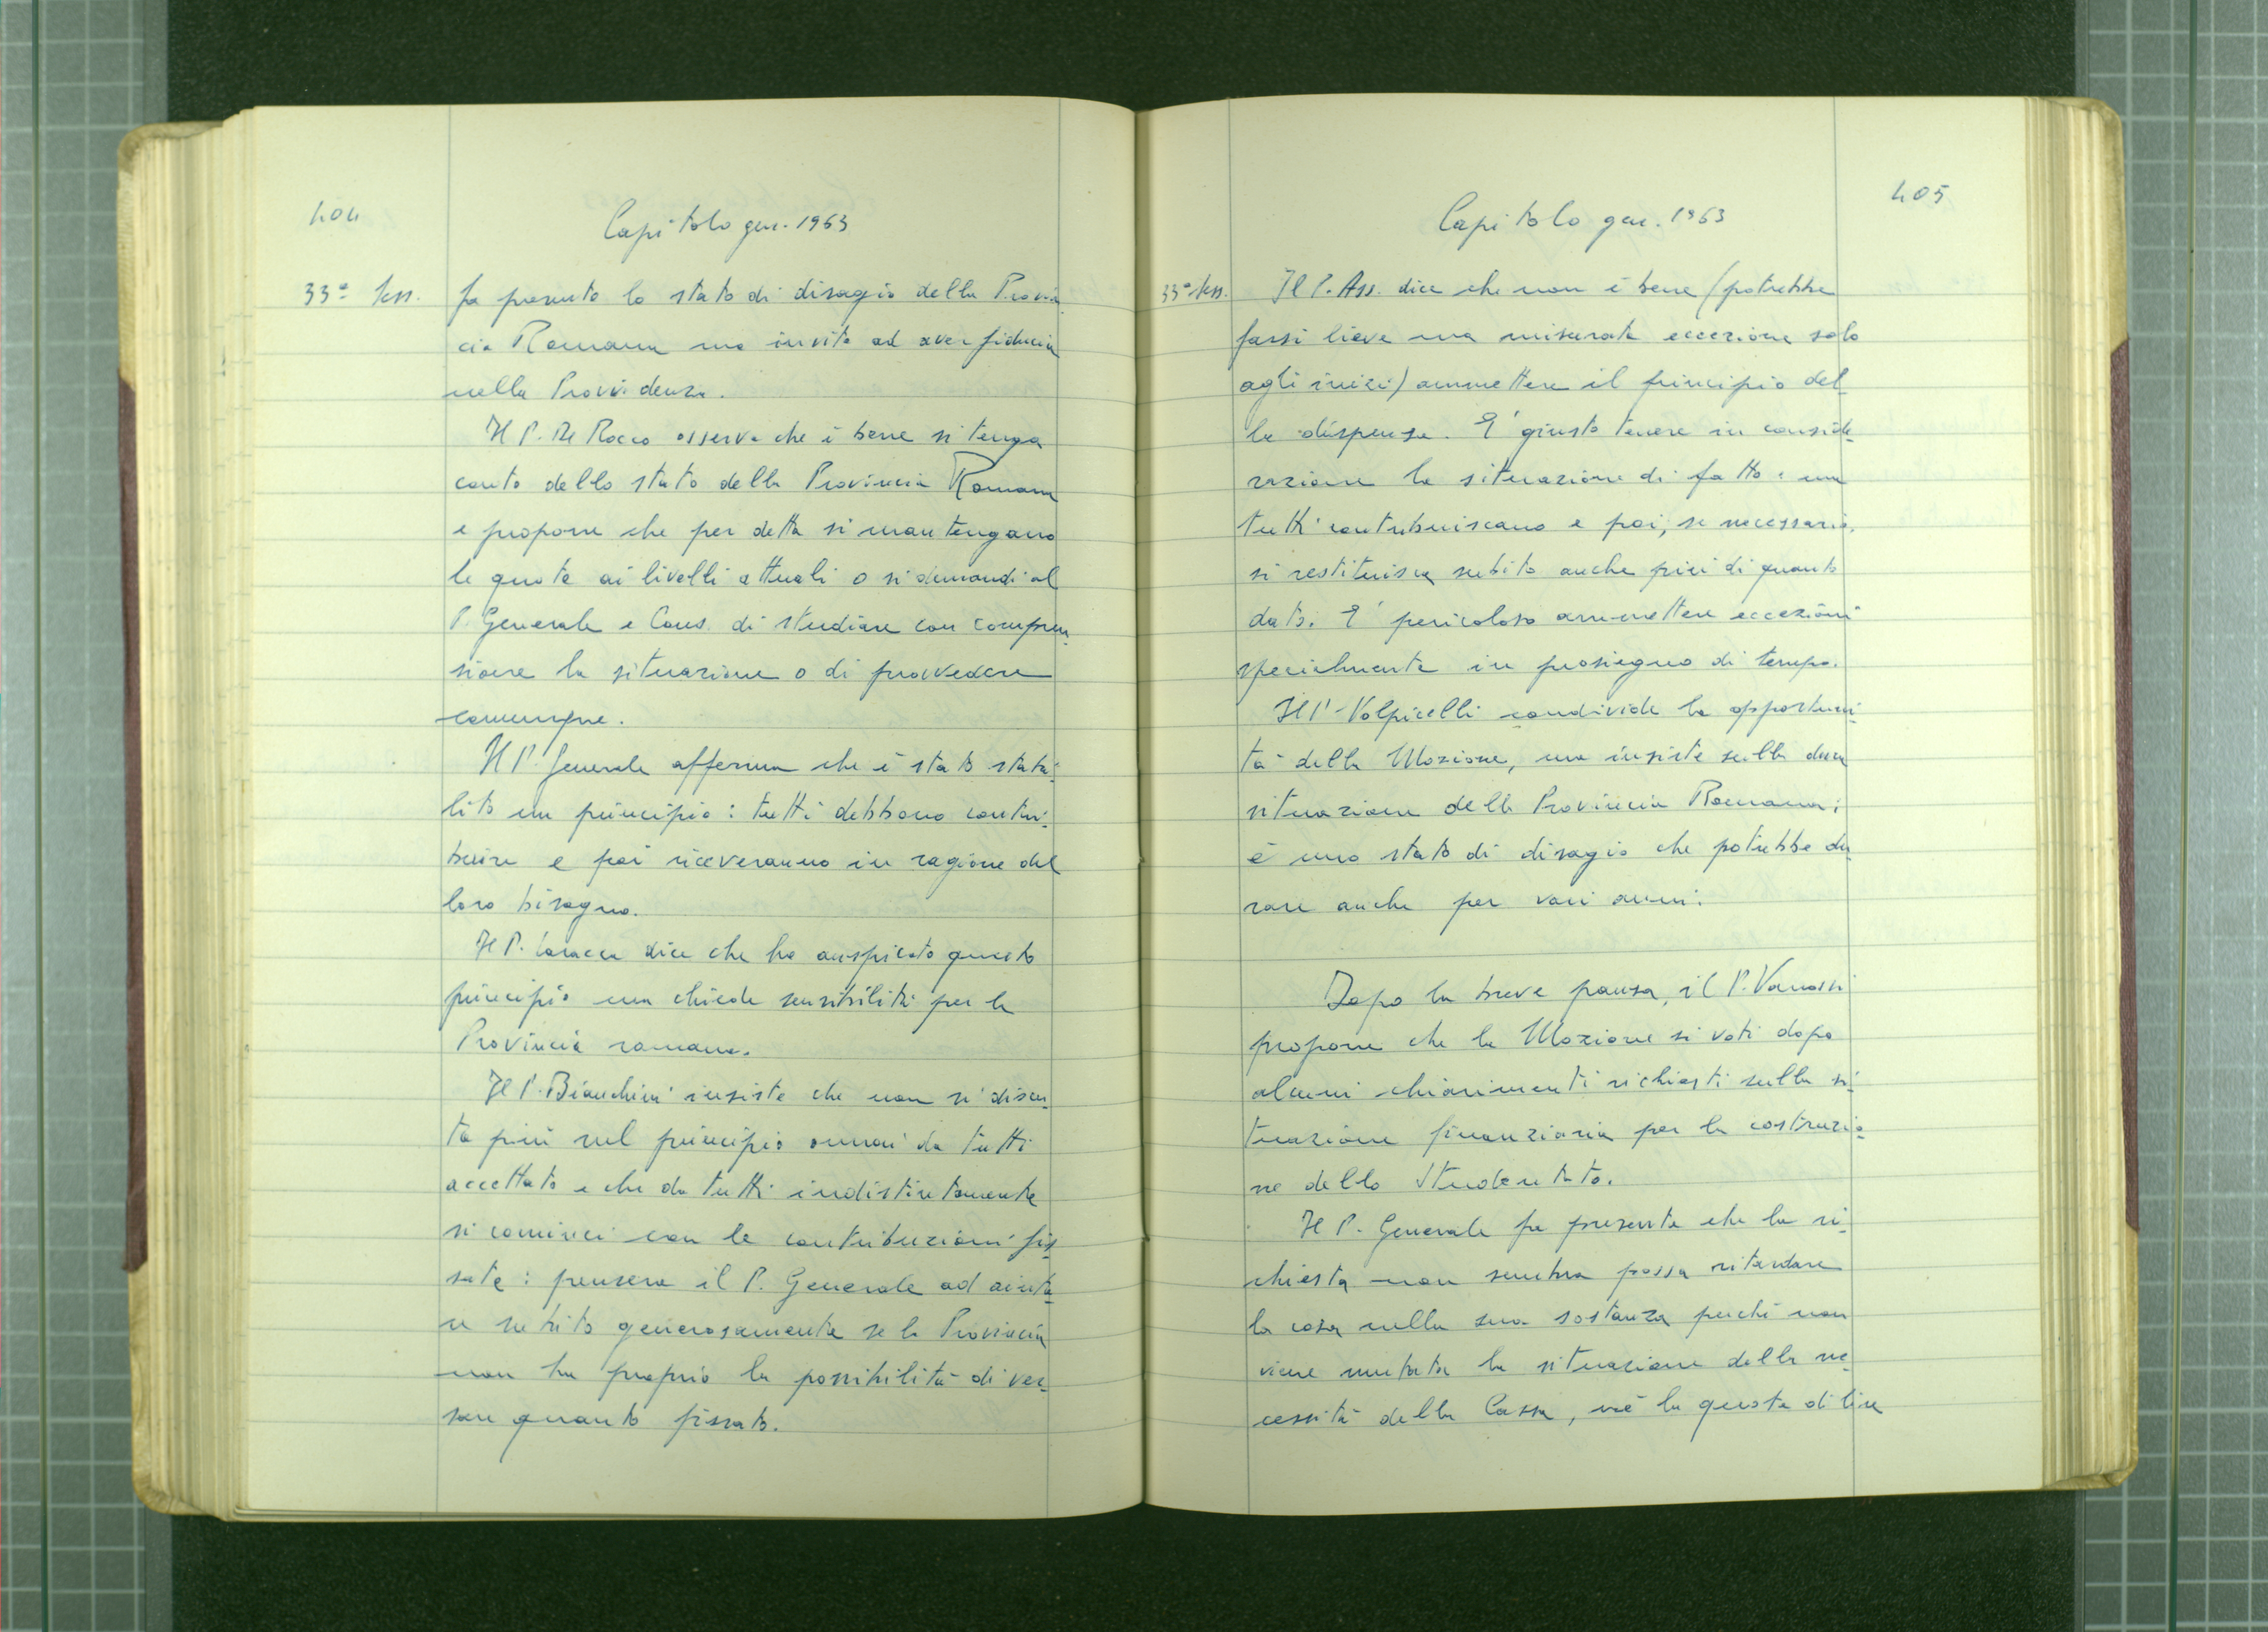 404
Capitolo gen. 1963
33ª Sess.
fa presente lo stato di disagio della Provin
cia Romana ma invita ad aver fiducia
nella Provvidenza.
Il P. De Rocco osserva che è bene si tenga
conto dello stato della Provincia Romana
e propone che per detta si mantengano
le quote ai livelli attuali o si demandi al
P. Generale e Cons. di studiare con compren-
sione la situazione o di provvedere
comunque.
Il P. Generale afferma che è stato stabi-
lito un principio: tutti debbono contri-
buire e poi riceveranno in ragione del
loro bisogno.
Il P. Laracca dice che ha auspicato questo
principio ma chiede sensibilità per la
Provincia romana.
Il P. Bianchini insiste che non si discu-
ta più sul principio ormai da tutti
accettato e che da tutti indistintamente
si cominci con le contribuzioni fis-
sate: penserà il P. Generale ad aiuta-
re subito generosamente se la Provincia
non ha proprio la possibilità di ver-
sare quanto fissato.
405
Capitolo gen. 1963
33ª Sess.
Il P. Ass. dice che non è bene (potrebbe
farsi lieve ma misurata eccezione solo
agli inizi) ammettere il principio del
la dispensa. E' giusto tenere in conside-
razione la situazione di fatto: ma
tutti contribuiscano e poi, se necessario,
si restituisca subito anche più di quanto
dato. E' pericoloso ammettere eccezioni
specialmente in prosieguo di tempo.
Il P. Volpicelli condivide la opportuni-
tà della Mozione, ma insiste sulla dura
situazione della Provincia Romana:
è uno stato di disagio che potrebbe du-
rare anche per vari anni.
Dopo la breve pausa, il P. Vanossi
propone che la Mozione si voti dopo
alcuni chiarimenti richiesti sulla si-
tuazione finanziaria per la costruzio-
ne dello Studentato.
Il P. Generale fa presente che la ri-
chiesta non sembra possa ritardare
la cosa nella sua sostanza perché non
viene mutata la situazione della ne-
cessità della Cassa, né la quota di lire